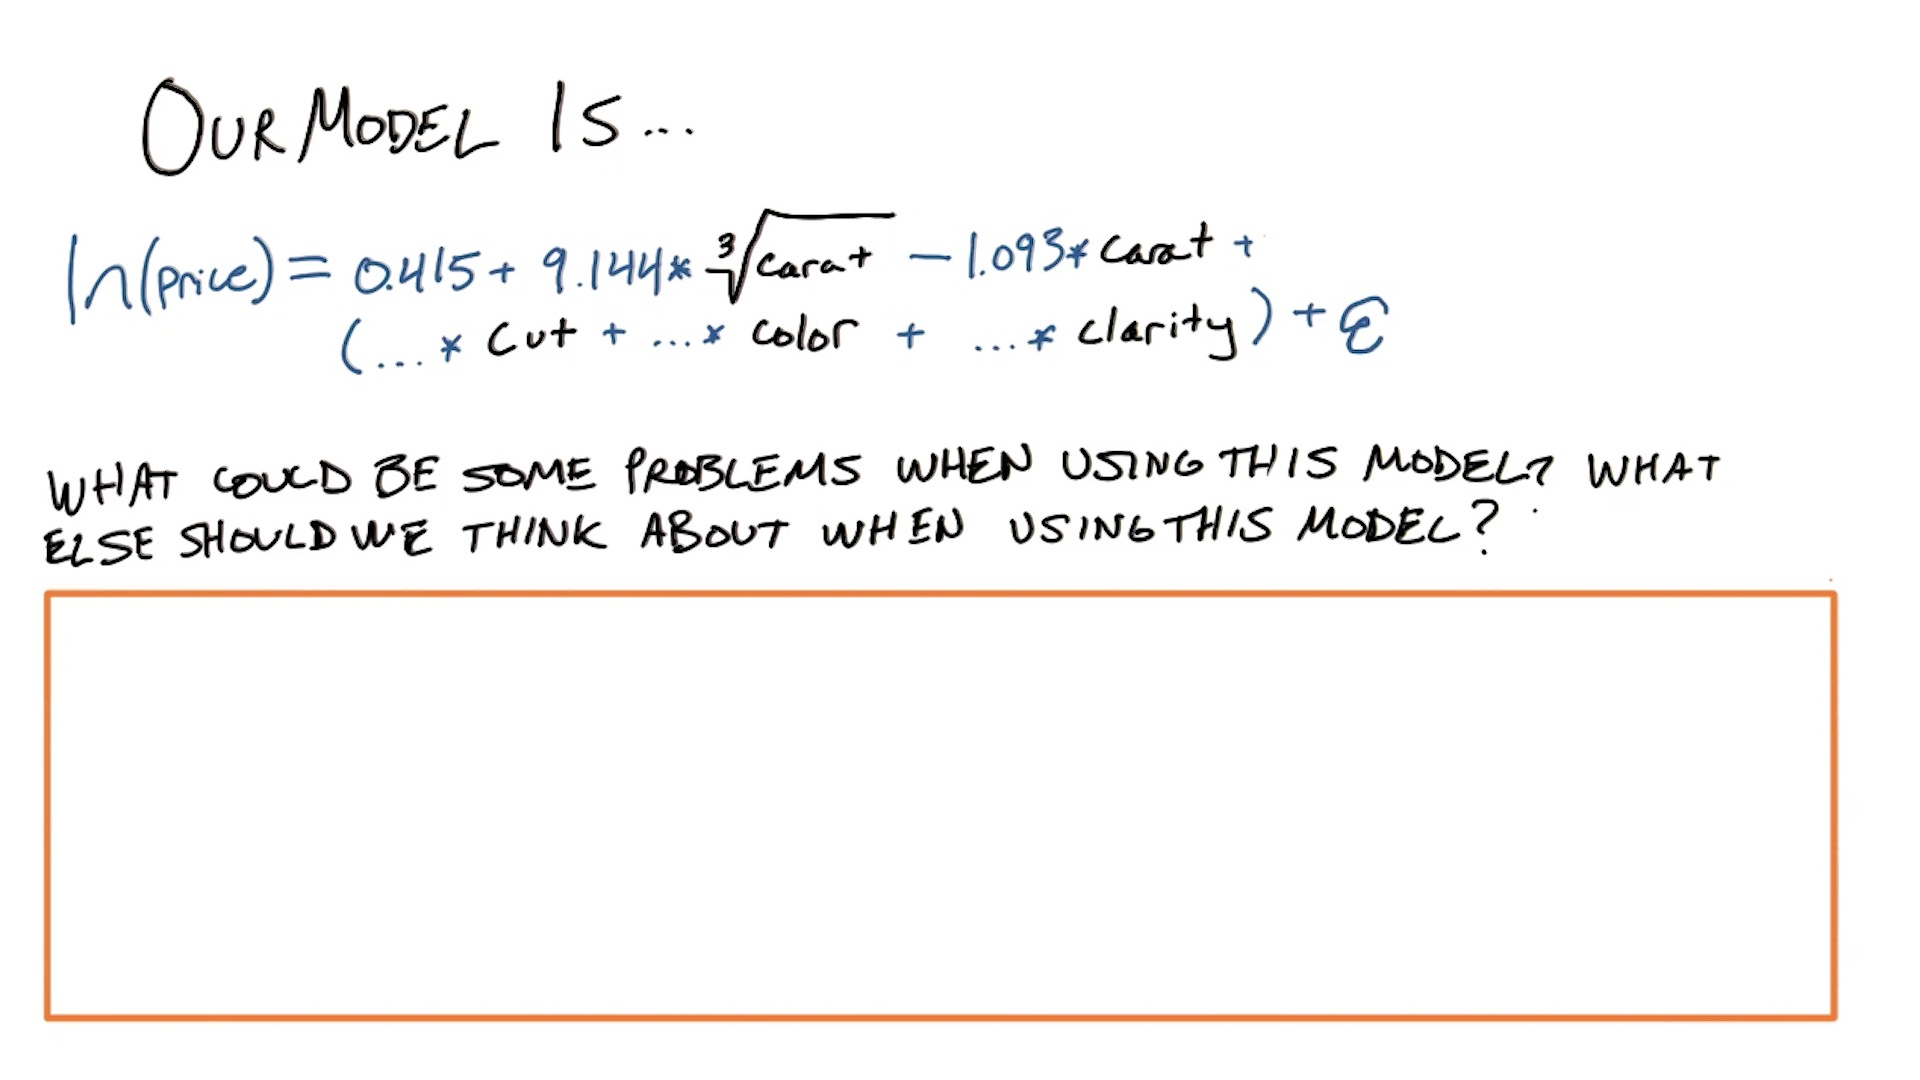 OUR MODEL IS...
ln(price) = 0.415 + 9.144 * ∛carat - 1.093 * carat +
(... * cut + ... * color + ... * clarity) + ε
WHAT COULD BE SOME PROBLEMS WHEN USING THIS MODEL? WHAT
ELSE SHOULD WE THINK ABOUT WHEN USING THIS MODEL?